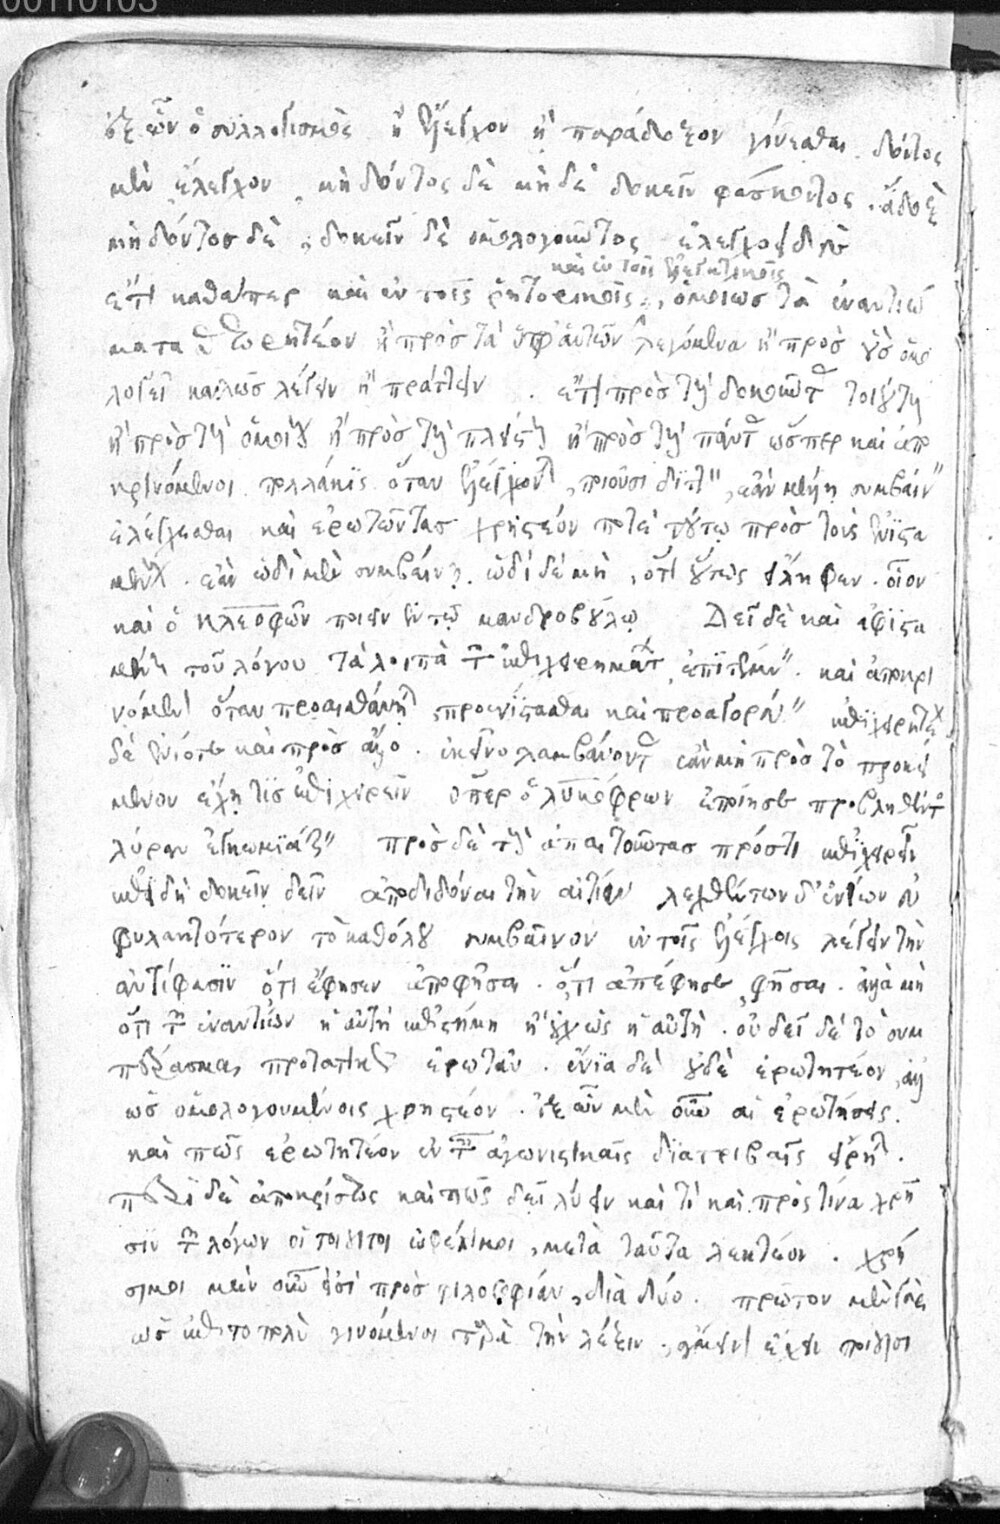 00110103
ἐξ ὧν ὁ συλλογισμὸς ἢ ἔλεγχον ἢ παράδοξον γίνεσθαι. δόντος
μὲν ἔλεγχον, μὴ δόντος δὲ μὴ δὲ δοκεῖν φάσκοντος, ἄδοξον
μὴ δόντος δὲ, δοκεῖν δὲ ὁμολογοῦντος ἐλεγχοειδὲς
καὶ ἐν τοῖς ἐλεγκτικοῖς
ἔτι καθάπερ καὶ ἐν τοῖς ῥητορικοῖς, ὁμοίως τὰ ἐναντιώ
ματα θεωρητέον ἢ πρὸς τὰ ὑφ' αὑτῶν λεγόμενα ἢ πρὸς οὓς ὁμο
λογεῖ καλῶς λέγειν ἢ πράττειν. ἔτι πρὸς τοὺς δοκοῦντας τοιούτους
ἢ πρὸς τοὺς ὁμοίους ἢ πρὸς τοὺς πλείστους ἢ πρὸς τοὺς πάντας ὥσπερ καὶ ἀπο
κρινόμενοι πολλάκις ὅταν ἐλέγχωνται, ποιοῦσι διττὸν, ἐὰν μέλλῃ συμβαίνειν
ἐλέγχεσθαι καὶ ἐρωτῶντας χρηστέον ποτὲ τούτῳ πρὸς τοὺς ἐνιστα
μένους. ἐὰν ὡδὶ μὲν συμβαίνῃ, ὡδὶ δὲ μὴ, ὅτι οὕτως εἴληφεν. οἷον
καὶ ὁ κλεοφῶν ποιεῖ ἐν τῷ μανδροβούλῳ Δεῖ δὲ καὶ ἀφιστα
μένους τοῦ λόγου τὰ λοιπὰ τῶν ἐπιχειρημάτων ἐπιτέμνειν. καὶ ἀποκρι
νόμενον ὅταν προαισθάνηται, προενίστασθαι καὶ προαγορεύειν ἐπιχειρητέον
δὲ ἐνίοτε καὶ πρὸς ἄλλο. ἐκεῖνο λαμβάνοντας ἐὰν μὴ πρὸς τὸ προκεί
μενον ἔχῃ τις ἐπιχειρεῖν ὅπερ ὁ λυκόφρων ἐποίησε προβληθέντος
λύραν ἐγκωμιάζειν πρὸς δὲ τοὺς ἀπαιτοῦντας πρός τι ἐπιχειρεῖν
ἐπειδὴ δοκεῖν δεῖν ἀποδιδόναι τὴν αἰτίαν λεχθέντων δ' ἐνίων εὐ
φυλακτότερον τὸ καθόλου συμβαῖνον ἐν τοῖς ἐλέγχοις λέγειν τὴν
ἀντίφασιν ὅτι ἔφησεν ἀποφῆσαι. ὅτι ἀπέφησε φῆσαι. ἀλλὰ μὴ
ὅτι τῶν ἐναντίων ἡ αὐτὴ ἐπιστήμη ἢ οὐχ ὡς ἡ αὐτή. οὐ δεῖ δὲ τὸ συμ
πέρασμα προτατικῶς ἐρωτᾶν. ἔνια δὲ οὐδὲ ἐρωτητέον, ἀλλ'
ὡς ὁμολογουμένοις χρηστέον. ἐξ ὧν μὲν οὖν αἱ ἐρωτήσεις.
καὶ πῶς ἐρωτητέον ἐν ταῖς ἀγωνιστικαῖς διατριβαῖς εἴρηται.
περὶ δὲ ἀποκρίσεως καὶ πῶς δεῖ λύειν καὶ τί καὶ πρὸς τίνα χρῆ
σιν τῶν λόγων οἱ τοιοῦτοι ὠφέλιμοι, μετὰ ταῦτα λεκτέον. χρή
σιμοι μὲν οὖν εἰσὶ πρὸς φιλοσοφίαν, διὰ δύο. πρῶτον μὲν γὰρ
ὡς ἐπιτοπολὺ γινόμενοι παρὰ τὴν λέξιν, ἄμεινον ἔχειν ποιοῦσι